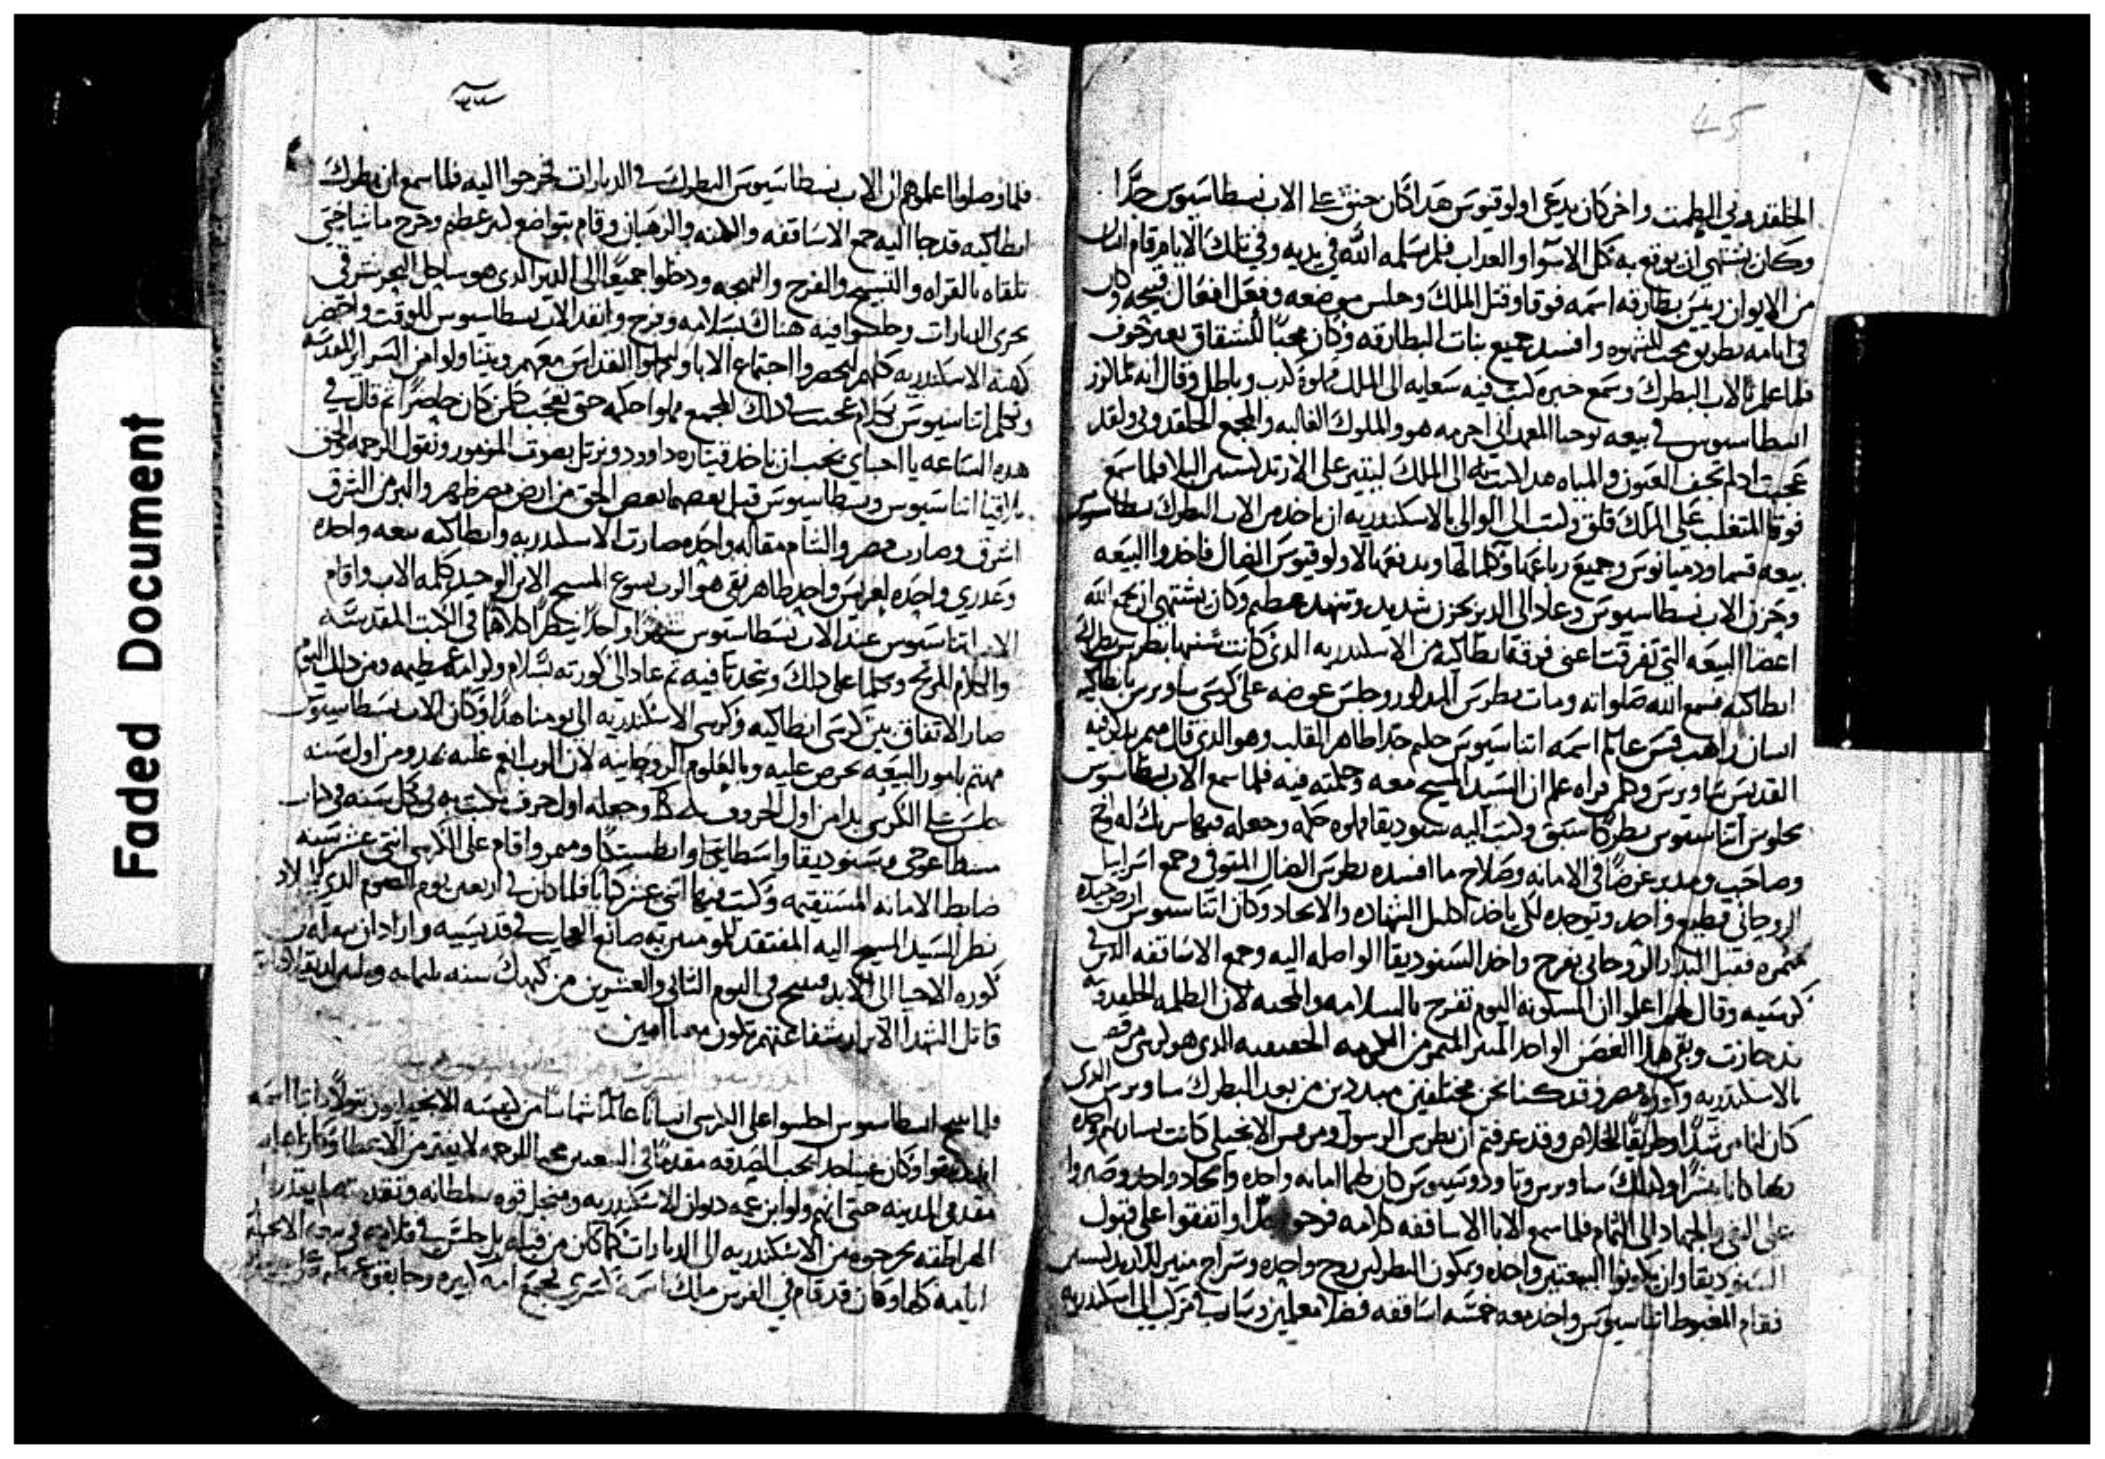 45
الخلقدوني الطمث واخر كان يدعى اولوقيوس هدا كان حنق على الاب نسطاسيوس جدًا
وكان يشتهي ان يوقع به كل الاسوا والعداب فلم يسلمه الله في يديه وفي تلك الايام قام انسان
من الايوان ريس بطارقه اسمه فوقا وقتل الملك وجلس موضعه وفعل افعال قبيحه وكان
في ايامه بطريق محب للشهوه وافسد جميع بنات البطارقه وكان محبًا للشقاق بغير خوف
فلما علم بالاب البطرك وسمع خبره كتب فيه سعايه الى الملك مملوة كدب وباطل وقال انه لما
انسطاسيوس في بيعه يوحنا المعمدان احرمه هو والملوك الغالبه والمجمع الخلقدوني ولقد
عجبت ادلم تجف العيون والمياه هدا كتبه الى الملك فلما سمع
فوقا المتغلب على الملك قلق وكتب الى الوالي بالاسكندريه ان ياخد من الاب البطرك نسطاسيوس
بيعه قسما ودميانوس وجميع رباعها وكلما لها ويدفعها لاولوقيوس الضال فاخدوا البيعه
وحزن الاب نسطاسيوس وعاد الى الدير بحزن شديد وتنهد عظيم وكان يشتهي ان يجمع الله
اعضا البيعه التي تفرقت اعني فرقة انطاكيه من الاسكندريه الدي كانت بسنها بطرس بطرك
انطاكيه فسمع الله صلواته ومات بطرس المدكور وجلس عوضه على كرسي ساويرس بانطاكيه
انسان راهب قس عالم اسمه اتناسيوس حليم جدًا طاهر القلب وهو الدي قال ميمر يدكر فيه
القديس ساويرس وكلمن قراه علم ان السيد المسيح معه وحكمته فيه فلما سمع الاب نسطاسيوس
بجلوس اتناسيوس بطركًا سبق وكتب اليه سنوديقا مملوه حكمه وجعله فيها شريك له واخ
وصاحب ومدبر عوضًا في الامانه وصلاح ما افسده بطرس الضال المتوفي وجمع اسراييل
الروحاني قطيع واحد وتوحده لكي ياخد اكليل الشهاده والاتحاد وكان اتناسيوس ارض جيده
متمره فقبل البدار الروحاني بفرح واخد السنوديقا الواصله اليه وجمع الاساقفه الدين في
كرسيه وقال لهم اعلموا ان المسكونه اليوم تفرح بالسلامه والمحبه لان الظلمه الخلقدونيه
قد جازت وبقي هدا الغصن الواحد المنير المتمر من الكرمه الحقيقيه الدي هو كرسي مرقص
بالاسكندريه وكورة مصر وقد كنا نحن مختلفين مبددين من بعد البطرك ساويرس الدي
كان لنا مرشدًا وطريقًا للخلاص وقد عرفتم ان بطرس الرسول ومرقس الانجيلي كانت بشارتهم واحده
بها كانا بشرا وكدلك ساويرس وتاودوسيوس كان لهما امانه واحده واتحاد واحد وصبروا
على النفي والجهاد الى التمام فلما سمع الابا الاساقفه كلامه فرحوا جدًا واتفقوا على قبول
السنوديقا وان يكونوا البيعتين واحده ويكون البطركين روح واحده وسراج منير
فقام المغبوط اتناسيوس واخد معه خمسه اساقفه فضلا معلمين وساروا في مركب الى اسكندريه
فلما وصلوا اعلموهم ان الاب نسطاسيوس البطرك في الديارات فخرجوا اليه فلما سمع ان بطرك
انطاكيه قد جا اليه جمع الاساقفه والكهنه والرهبان وقام بتواضع كبير عظيم وخرج ماشيا حتى
تلقاه بالقراه والتسبيح والفرح والبهجه ودخلوا جميعًا الى الدير الدي هو ساحل البحر شرقي
بحري الديارات وجلسوا فيه هناك بسلامه وفرح وانفد الاب نسطاسيوس للوقت واحضر
كهنة الاسكندريه كلهم ليحضروا اجتماع الابا ويكملوا القداس معهم ويتناولوا من السراير المقدسه
وتكلم اتناسيوس بكلام عجيب في دلك المجمع مملوا حكمه حتى تعجب كلمن كان حاضرًا ثم قال في
هده الساعه يا احباي يجب ان ناخد قيتاره داوود ونرتل بصوت المزمور ونقول الرحمه والحق
تلاقيا اتناسيوس ونسطاسيوس قبل بعضهما بعض الحق من ارض مصر ظهر والبر من الشرق
اشرق وصارت مصر والشام مقاله واحده صارت الاسكندريه وانطاكيه بيعه واحده
وعدري واحده لعريس واحد طاهر نقي هو الرب يسوع المسيح الابن الوحيد كلمه الاب واقام
الاب اتناسيوس عند الاب نسطاسيوس شهرًا واحدًا ينظرا كلاهما في الكتب المقدسه
والكلام المربح وتكلما على دلك وتحدتا فيه ثم عاد الى كورته بسلام وكرامه عظيمه ومن دلك اليوم
صار الاتفاق بين كرسي انطاكيه وكرسي الاسكندريه الى يومنا هدا وكان الاب نسطاسيوس
مهتم بامور البيعه بحرص عليه وبالعلوم الروحانيه لان الرب انعم عليه بهدا ومن اول سنه
جلس على الكرسي بدا من اول الحروف وجعله اول حرف يكتب به في كل سنه في كتاب
واقام على الكرسي اتني عشر سنه
ضابط الامانه المستقيمه وكتب فيها اتني عشر كتابا فلما كان في اربعين يوم الصوم الدي للميلاد
نظر السيد المسيح اليه المفتقد للمومنين به صانع العجايب في قديسيه واراد ان ينقله الى
كوره الاحيا الى الابد فتنيح في اليوم التاني والعشرين من كيهك سنه تلتمايه وتلتين لديقلاديانوس
قاتل الشهدا الابرار شفاعتهم تكون معنا امين
فلما تنيح انسطاسيوس اجلسوا على الكرسي انسانًا عالمًا شماسًا من كنيسه الانجيليون بتولًا دايما اسمه
اندرونيقوا وكان غني جدا يحب الصدقه مقدمًا في الشعبين محبا للرحمه لا يفتر من الاعطا وكان اهله
مقدمي المدينه حتى انهم ولوا ابن عمه ديوان الاسكندريه ومن اجل قوه سلطانه وتقدمته لم يقدروا
الهراطقه يخرجوه من الاسكندريه الى الديارات كما كان من قبله بل جلس في قلايته في بيعه الانجيليين
ايامه كلها وكان قد قام في الفرس ملك اسمه كسرى فجمع امه كبيره